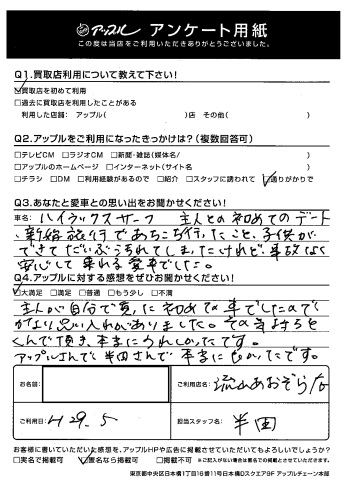 アップル アンケート用紙
この度は当店をご利用いただきありがとうございました。
Q1.買取店利用について教えて下さい!
☑買取店を初めて利用
□過去に買取店を利用したことがある
利用した店舗: アップル( )店 その他( )
Q2.アップルをご利用になったきっかけは?(複数回答可)
□テレビCM □ラジオCM □新聞・雑誌(媒体名/ )
□アップルのホームページ □インターネット(サイト名 )
□チラシ □DM □利用経験があるので □紹介 □スタッフに誘われて ☑通りがかりで
Q3.あなたと愛車との思い出をお聞かせください!
車名: ハイラックスサーフ 主人との初めてのデート
、新婚旅行であちこち行ったこと、子供が
できてだいぶうもれてしまったけれど、事故なく
安心して乗れる愛車でした。
Q4.アップルに対する感想をぜひお聞かせください!
☑大満足 □満足 □普通 □もう少し □不満
主人が自分で買った初めての車でしたので
かなり思い入れがありました。その気持ちを
くんで頂き、本当にうれしかったです。
アップルさんで半田さんで本当に良かったです。
お名前:
ご利用店名: 流山あおぞら店
ご利用日: H29.5
担当スタッフ名: 半田
お客様に書いていただいた感想を、アップルHPや広告に掲載させていただいてもよろしいでしょうか?
□実名で掲載可 ☑匿名なら掲載可 □掲載不可 ※ご記入がない場合は匿名での掲載とさせていただきます。
東京都中央区日本橋1丁目16番11号日本橋Dスクエア9F アップルチェーン本部